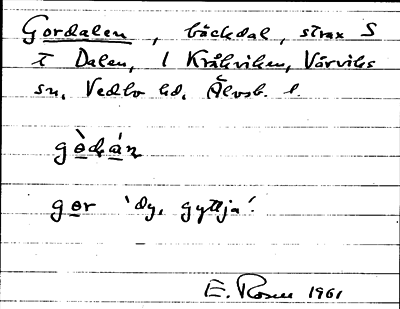 Gordalen, bäckdal, strax S
t Dalen, 1 Kråkviken, Vårviks
sn, Vedbo hd, Älvsb. l.
gòdán
gor 'dy, gyttja'.
E. Rosen 1961